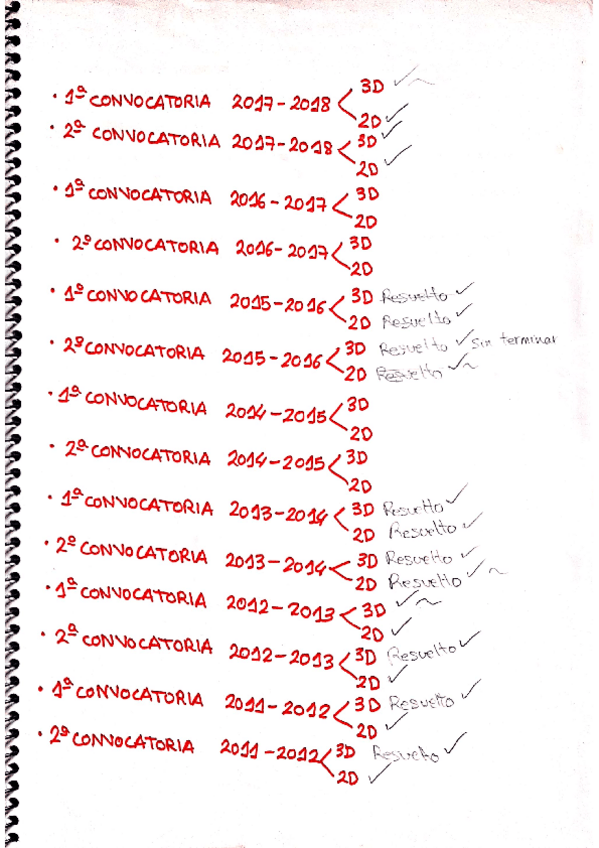 · 1ª CONVOCATORIA 2017-2018 < 3D ✓ ~
2D ✓
· 2ª CONVOCATORIA 2017-2018 < 3D ✓
2D ✓
· 1ª CONVOCATORIA 2016-2017 < 3D
2D
· 2ª CONVOCATORIA 2016-2017 < 3D
2D
· 1ª CONVOCATORIA 2015-2016 < 3D Resuelto ✓
2D Resuelto ✓
· 2ª CONVOCATORIA 2015-2016 < 3D Resuelto ✓ Sin terminar
2D Resuelto ✓ ~
· 1ª CONVOCATORIA 2014-2015 < 3D
2D
· 2ª CONVOCATORIA 2014-2015 < 3D
2D
· 1ª CONVOCATORIA 2013-2014 < 3D Resuelto ✓
2D Resuelto ✓
· 2ª CONVOCATORIA 2013-2014 < 3D Resuelto ✓
2D Resuelto ✓ ~
· 1ª CONVOCATORIA 2012-2013 < 3D ✓ ~
2D ✓
· 2ª CONVOCATORIA 2012-2013 < 3D Resuelto ✓
2D ✓
· 1ª CONVOCATORIA 2011-2012 < 3D Resuelto ✓
2D ✓
· 2ª CONVOCATORIA 2011-2012 < 3D Resuelto ✓
2D ✓